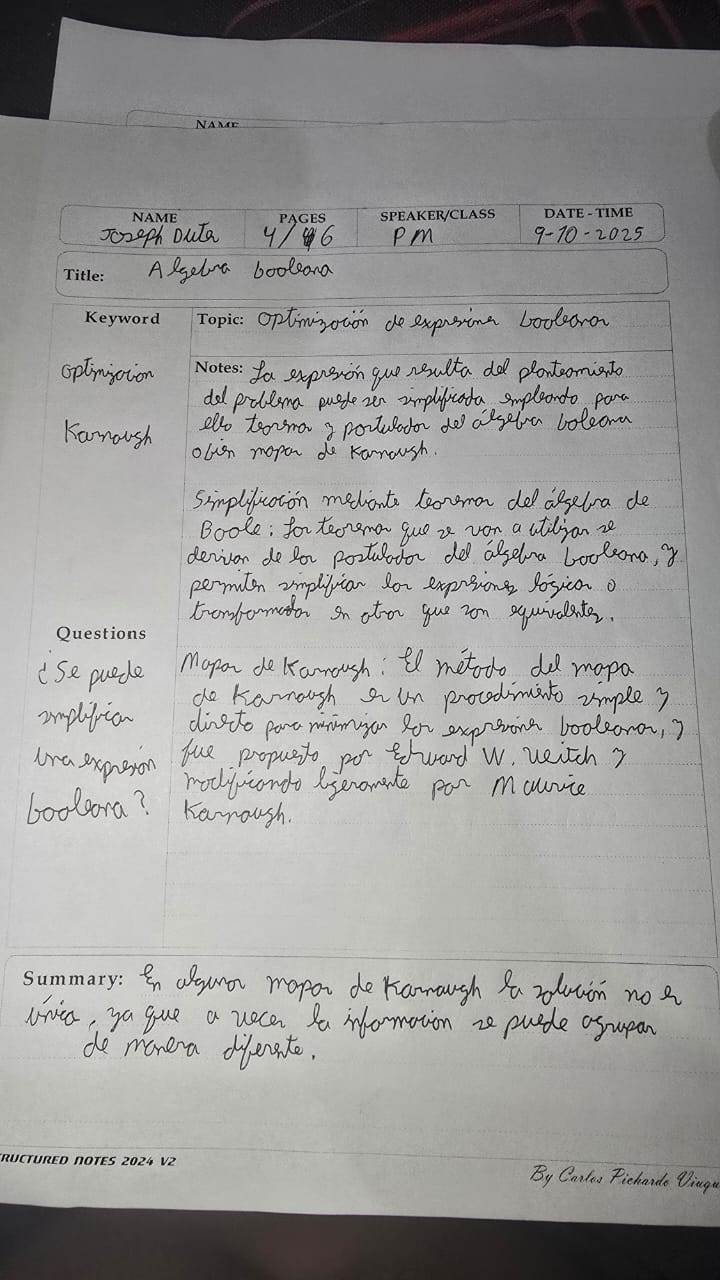 NAME
NAME
Joseph Duta
PAGES
4/6
SPEAKER/CLASS
PM
DATE - TIME
9-10-2025
Title: Algebra booleana
Keyword
Optimizacion
Karnaugh
Topic: Optimización de expresiones booleanas
Notes: La expresión que resulta del planteamiento
del problema puede ser simplificada empleando para
ello teoremas y postulados del álgebra boleana
o bien mapas de Karnaugh.
Simplificación mediante teoremas del álgebra de
Boole: Los teoremas que se van a utilizar se
derivan de los postulados del álgebra booleana, y
permiten simplificar las expresiones lógicas o
transformadas en otras que son equivalentes.
Questions
¿Se puede
simplificar
una expresión
booleana?
Mapas de Karnaugh: El método del mapa
de Karnaugh es un procedimiento simple y
directo para minimizar las expresiones booleanas, y
fue propuesto por Edward W. Veitch y
modificando ligeramente por Maurice
Karnaugh.
Summary: En algunos mapas de Karnaugh la solución no es
única, ya que a veces la información se puede agrupar
de manera diferente.
RUCTURED NOTES 2024 V2
By Carlos Pichardo Viuqu